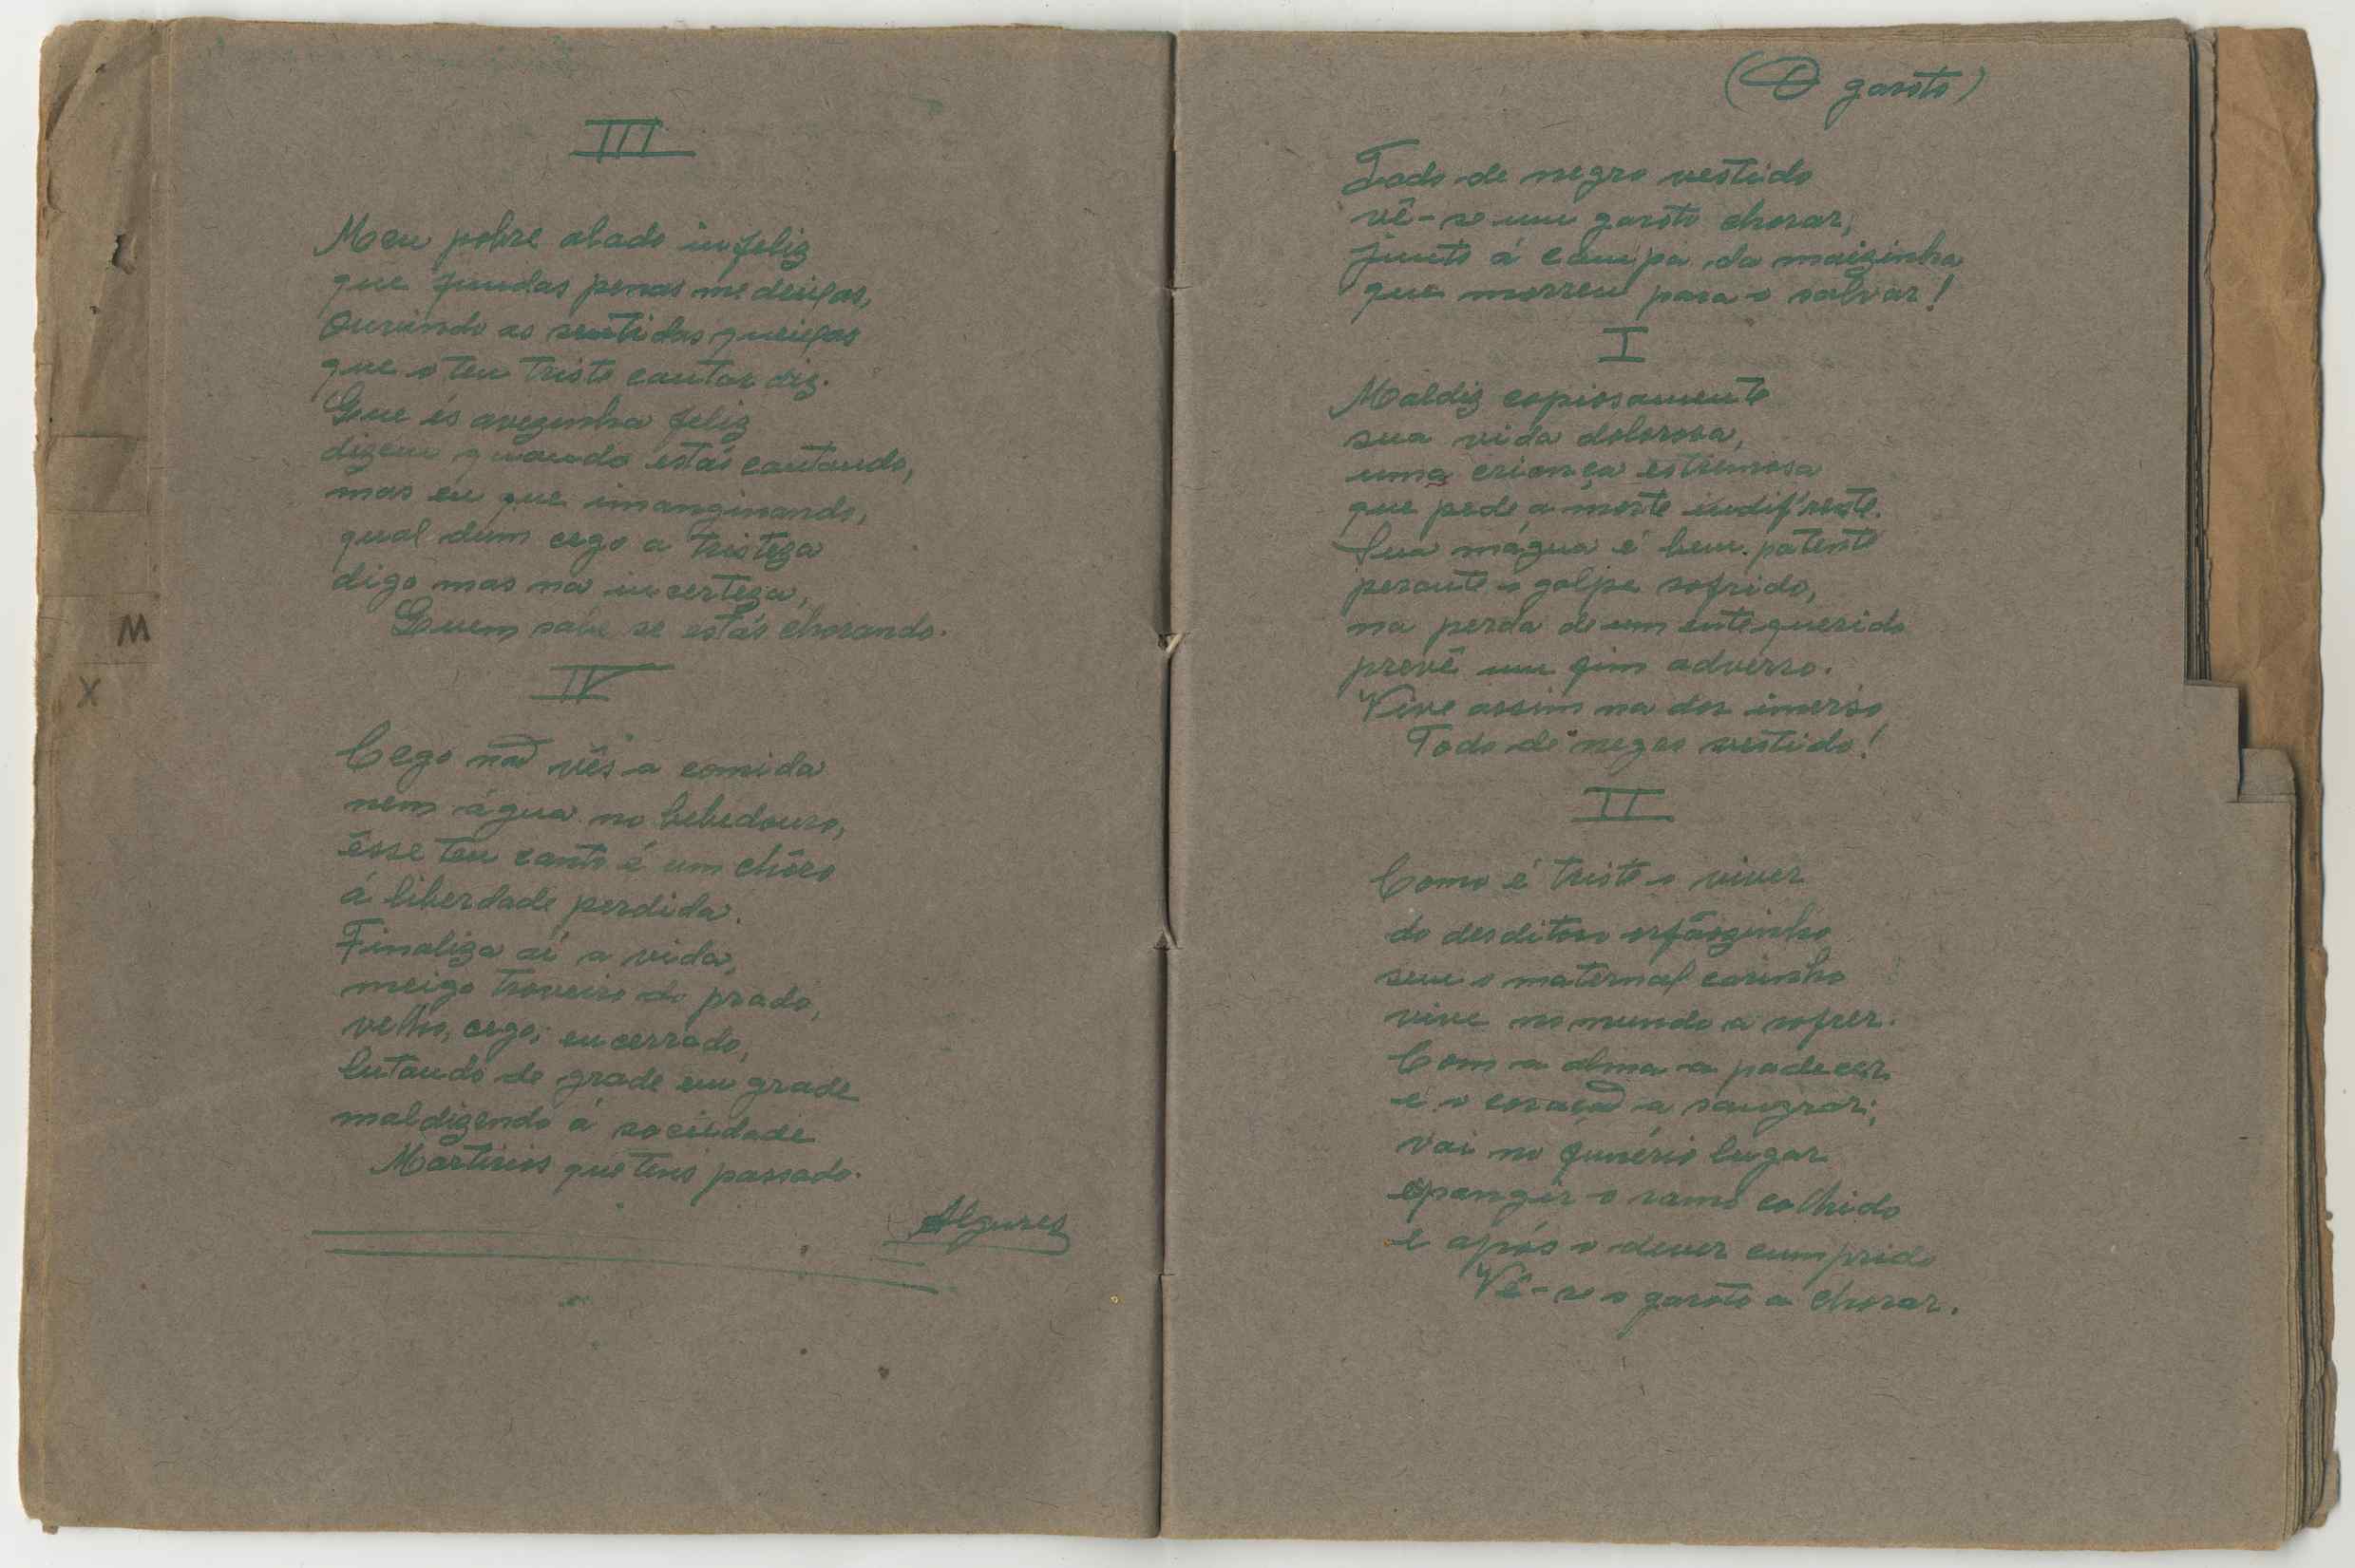 III
Meu pobre alado infeliz
que fundas penas me deixas,
Ouvindo as sentidas queixas
que o teu triste cantar diz.
Que és avezinha feliz
dizem quando estás cantando,
mas eu que imanginando,
qual dum cego a tristeza
digo mas na incerteza,
Quem sabe se estás chorando.
IV
Cego não vês a comida
nem água no bebedouro,
êsse teu canto é um chôro
á liberdade perdida.
Finaliza aí a vida,
meigo troveiro do prado,
velho, cego, encerrado,
lutando de grade em grade
maldizendo á sociedade
Martirios que tens passado.
Algures
M
X
(O garoto)
Todo de negro vestido
vê-se um garoto chorar,
junto á campa da maizinha
que morreu para o salvar!
I
Maldiz copiosamente
sua vida dolorosa,
uma criança estremosa
que pede a morte indif'rente.
Sua mágua é bem patente
perante o golpe sofrido,
na perda de um ente querido
prevê um fim adverso.
Vive assim na dor imerso
Todo de negro vestido!
II
Como é triste o viver
do desditoso orfãozinho
sem o maternal carinho
vive no mundo a sofrer.
Com a alma a padecer
e o coração a sangrar;
vai no funério lugar
espangir o ramo colhido
e após o dever cumprido
Vê-se o garoto a chorar.